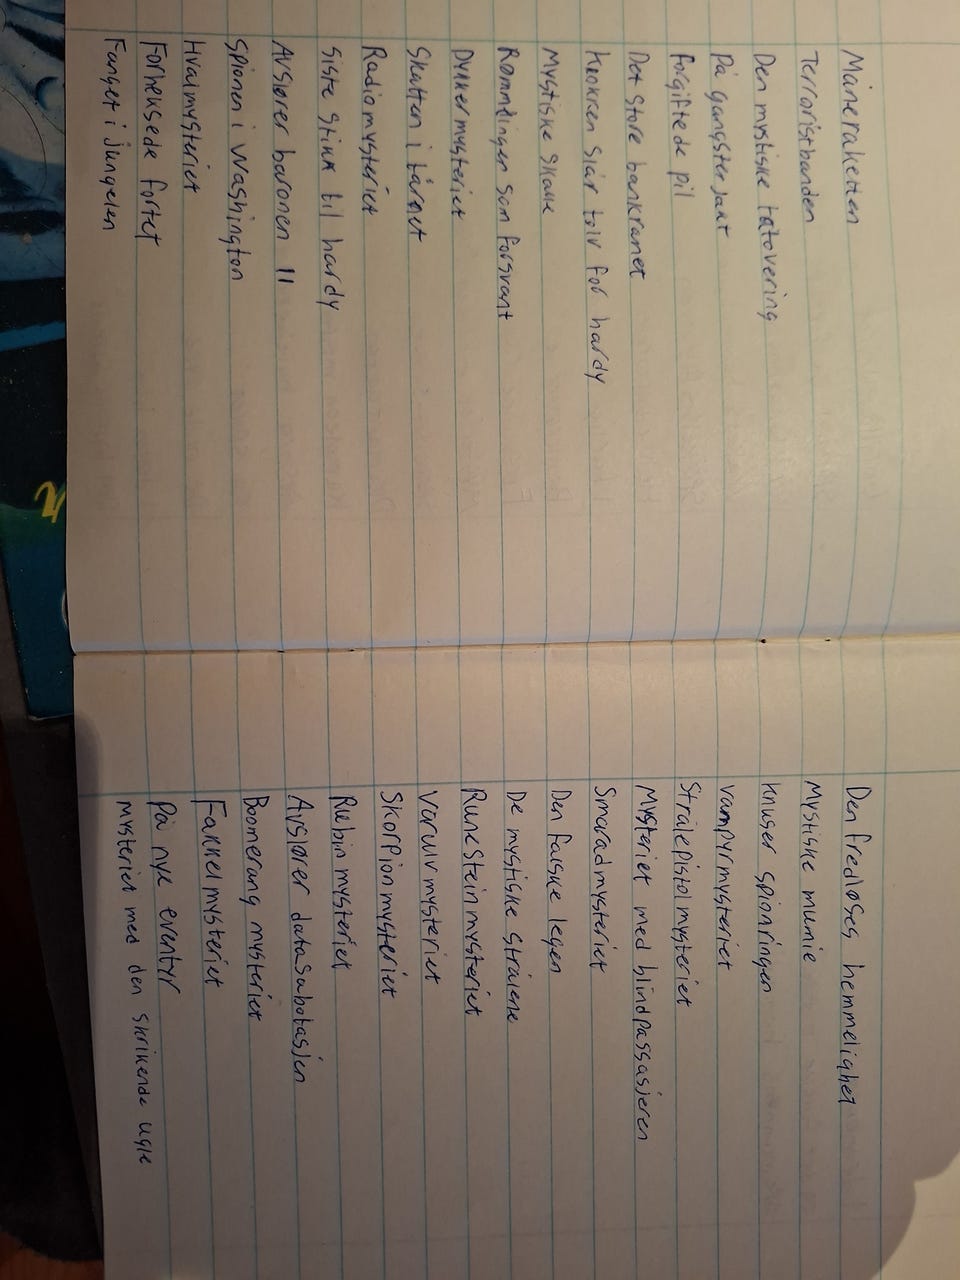 Måneraketten
Terroristbanden
Den mystiske tatovering
På gangsterjakt
forgiftede pil
Det store bankranet
klokken slår tolv for hardy
Mystiske skalle
Rømmlingen som forsvant
Dykkermysteriet
Skatten i tårnet
Radiomysteriet
Siste stikk til hardy
Avslører baronen 11
Spionen i Washington
Hvalmysteriet
Forheksede fortet
Fanget i jungelen
Den fredløses hemmelighet
Mystiske mumie
Knuser spionringen
vampyrmysteriet
Strålepistolmysteriet
Mysteriet med blindpassasjeren
Smaradmysteriet
Den falske legen
De mystiske strålene
Runesteinmysteriet
Varulvmysteriet
Skorpionmysteriet
Rubinmysteriet
Avslører datasabotasjen
Boomerang mysteriet
Fakkelmysteriet
På nye eventyr
mysteriet med den skrikende ugle